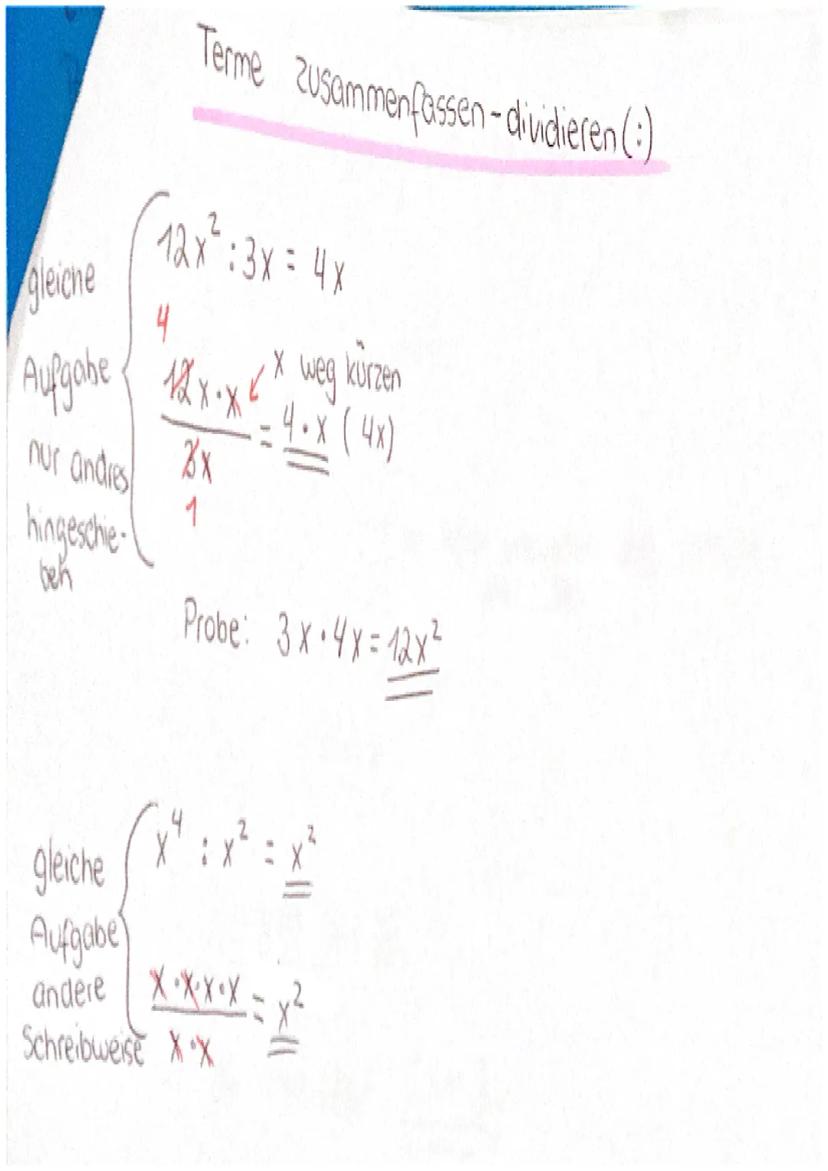 Terme zusammenfassen-dividieren (:)
gleiche
Aufgabe
nur andres
hingeschie-
ben
12x² : 3x = 4x
4
12x · x ↙ x weg kürzen
3x
1
= 4 · x (4x)
Probe: 3x · 4x = 12x²
gleiche
Aufgabe
andere
Schreibweise
x⁴ : x² = x²
x · x · x · x = x²
x · x